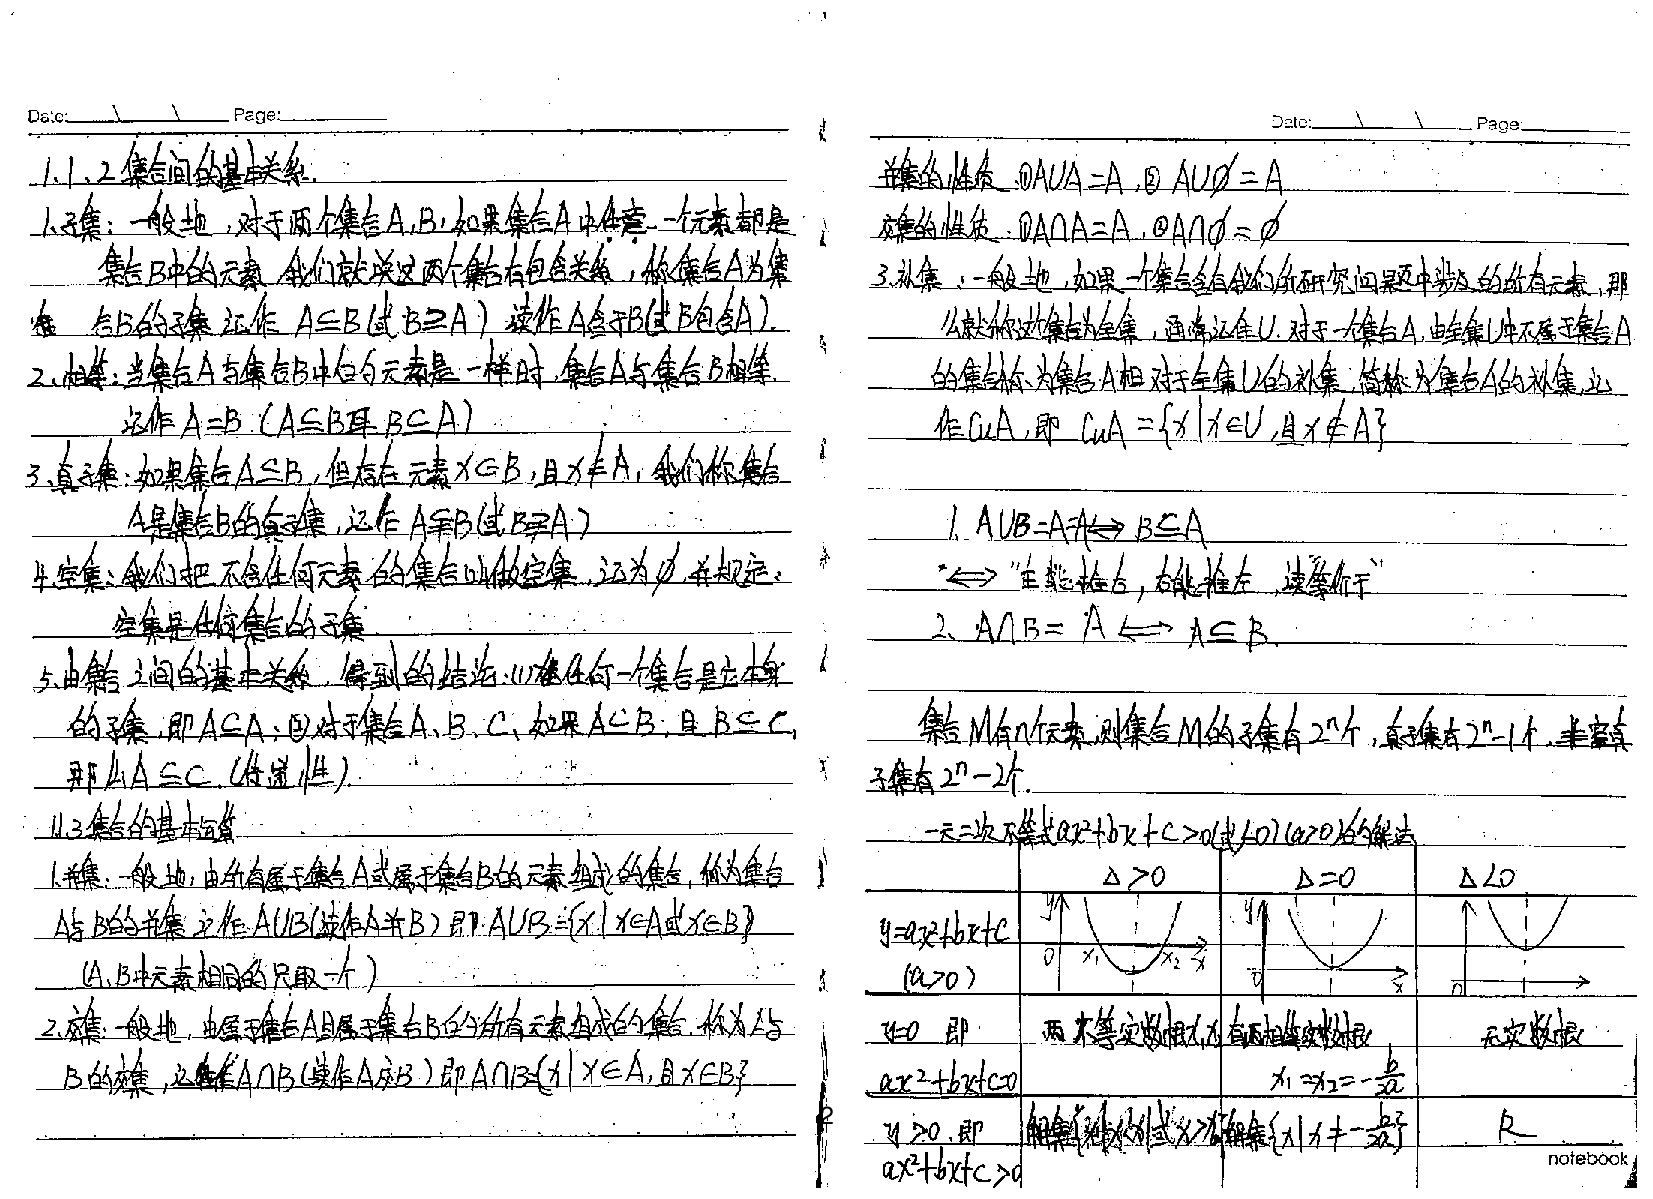 Date: \ \ Page:
1.1.2 集合间的基本关系.
1.子集:一般地,对于两个集合A,B,如果集合A中任意一个元素都是
集合B中的元素,我们就说这两个集合有包含关系,称集合A为集
合B的子集 记作 A⊆B(或B⊇A) 读作A含于B(或B包含A).
2.相等:当集合A与集合B中的元素是一样时,集合A与集合B相等.
记作 A=B.(A⊆B且B⊆A)
3.真子集:如果集合A⊆B,但存在元素x∈B,且x∉A,我们称集合
A是集合B的真子集,记作 A⫋B(或B⫌A)
4.空集:我们把不含任何元素的集合叫做空集,记为∅,并规定:
空集是任何集合的子集
5.由集合之间的基本关系,得到的结论:(1)任何一个集合是它本身
的子集,即A⊆A;②对于集合A、B、C,如果A⊆B,且B⊆C,
那么A⊆C.(传递性).
1.1.3集合的基本运算
1.并集:一般地,由所有属于集合A或属于集合B的元素组成的集合,称为集合
A与B的并集 记作 A∪B(读作A并B)即 A∪B={x|x∈A或x∈B}
(A、B中元素相同的只取一个)
2.交集:一般地,由属于集合A且属于集合B的所有元素组成的集合,称为A与
B的交集,记作A∩B(读作A交B)即A∩B={x|x∈A,且x∈B}
Date: \ \ Page:
并集的性质.①A∪A=A,② A∪∅=A
交集的性质.①A∩A=A,②A∩∅=∅
3.补集:一般地,如果一个集合含有我们所研究问题中涉及的所有元素,那
么就称这个集合为全集,通常记作U.对于一个集合A,由全集U中不属于集合A
的集合称为集合A相对于全集U的补集,简称为集合A的补集,记
作∁uA,即 ∁uA={x|x∈U,且x∉A}
1. A∪B=A⟺B⊆A
"⟺"左能推右,右能推左,读"等价于"
2. A∩B= A ⟺ A⊆B.
集合M有n个元素,则集合M的子集有2ⁿ个,真子集有2ⁿ-1个,非空真
子集有2ⁿ-2个.
一元二次不等式ax²+bx+c>0(或<0)(a>0)的解法
Δ>0 Δ=0 Δ<0
y=ax²+bx+c
(a>0)
y 0 x₁ x₂ x
y 0 x
0
y=0 即 两不等实数根x₁,x₂ 有两相等实数根 无实数根
ax²+bx+c=0 x₁=x₂=-b/2a
y>0 即 解集{x|x<x₁或x>x₂} 解集{x|x≠-b/2a} R
ax²+bx+c>0
notebook